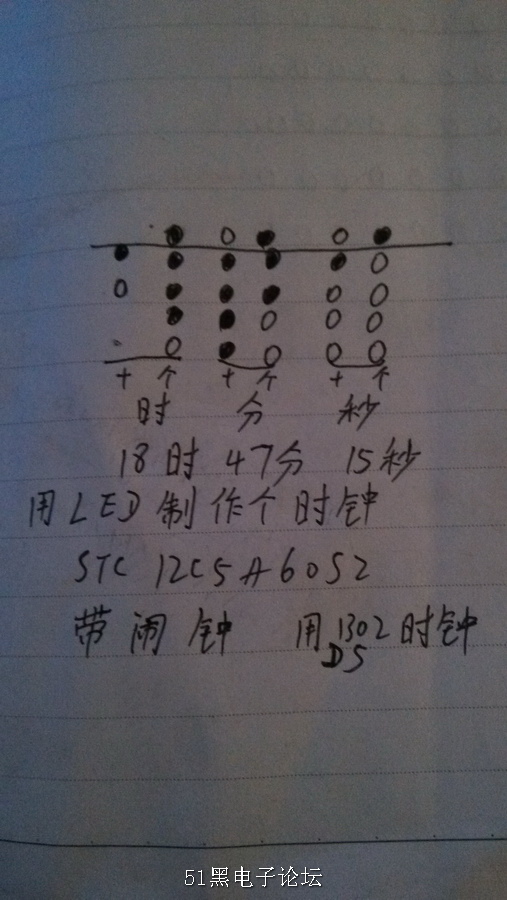 十 个 十 个 十 个
时 分 秒
18时 47分 15秒
用LED制作个时钟
STC 12C5A60S2
带闹钟 用1302时钟
DS
51黑电子论坛